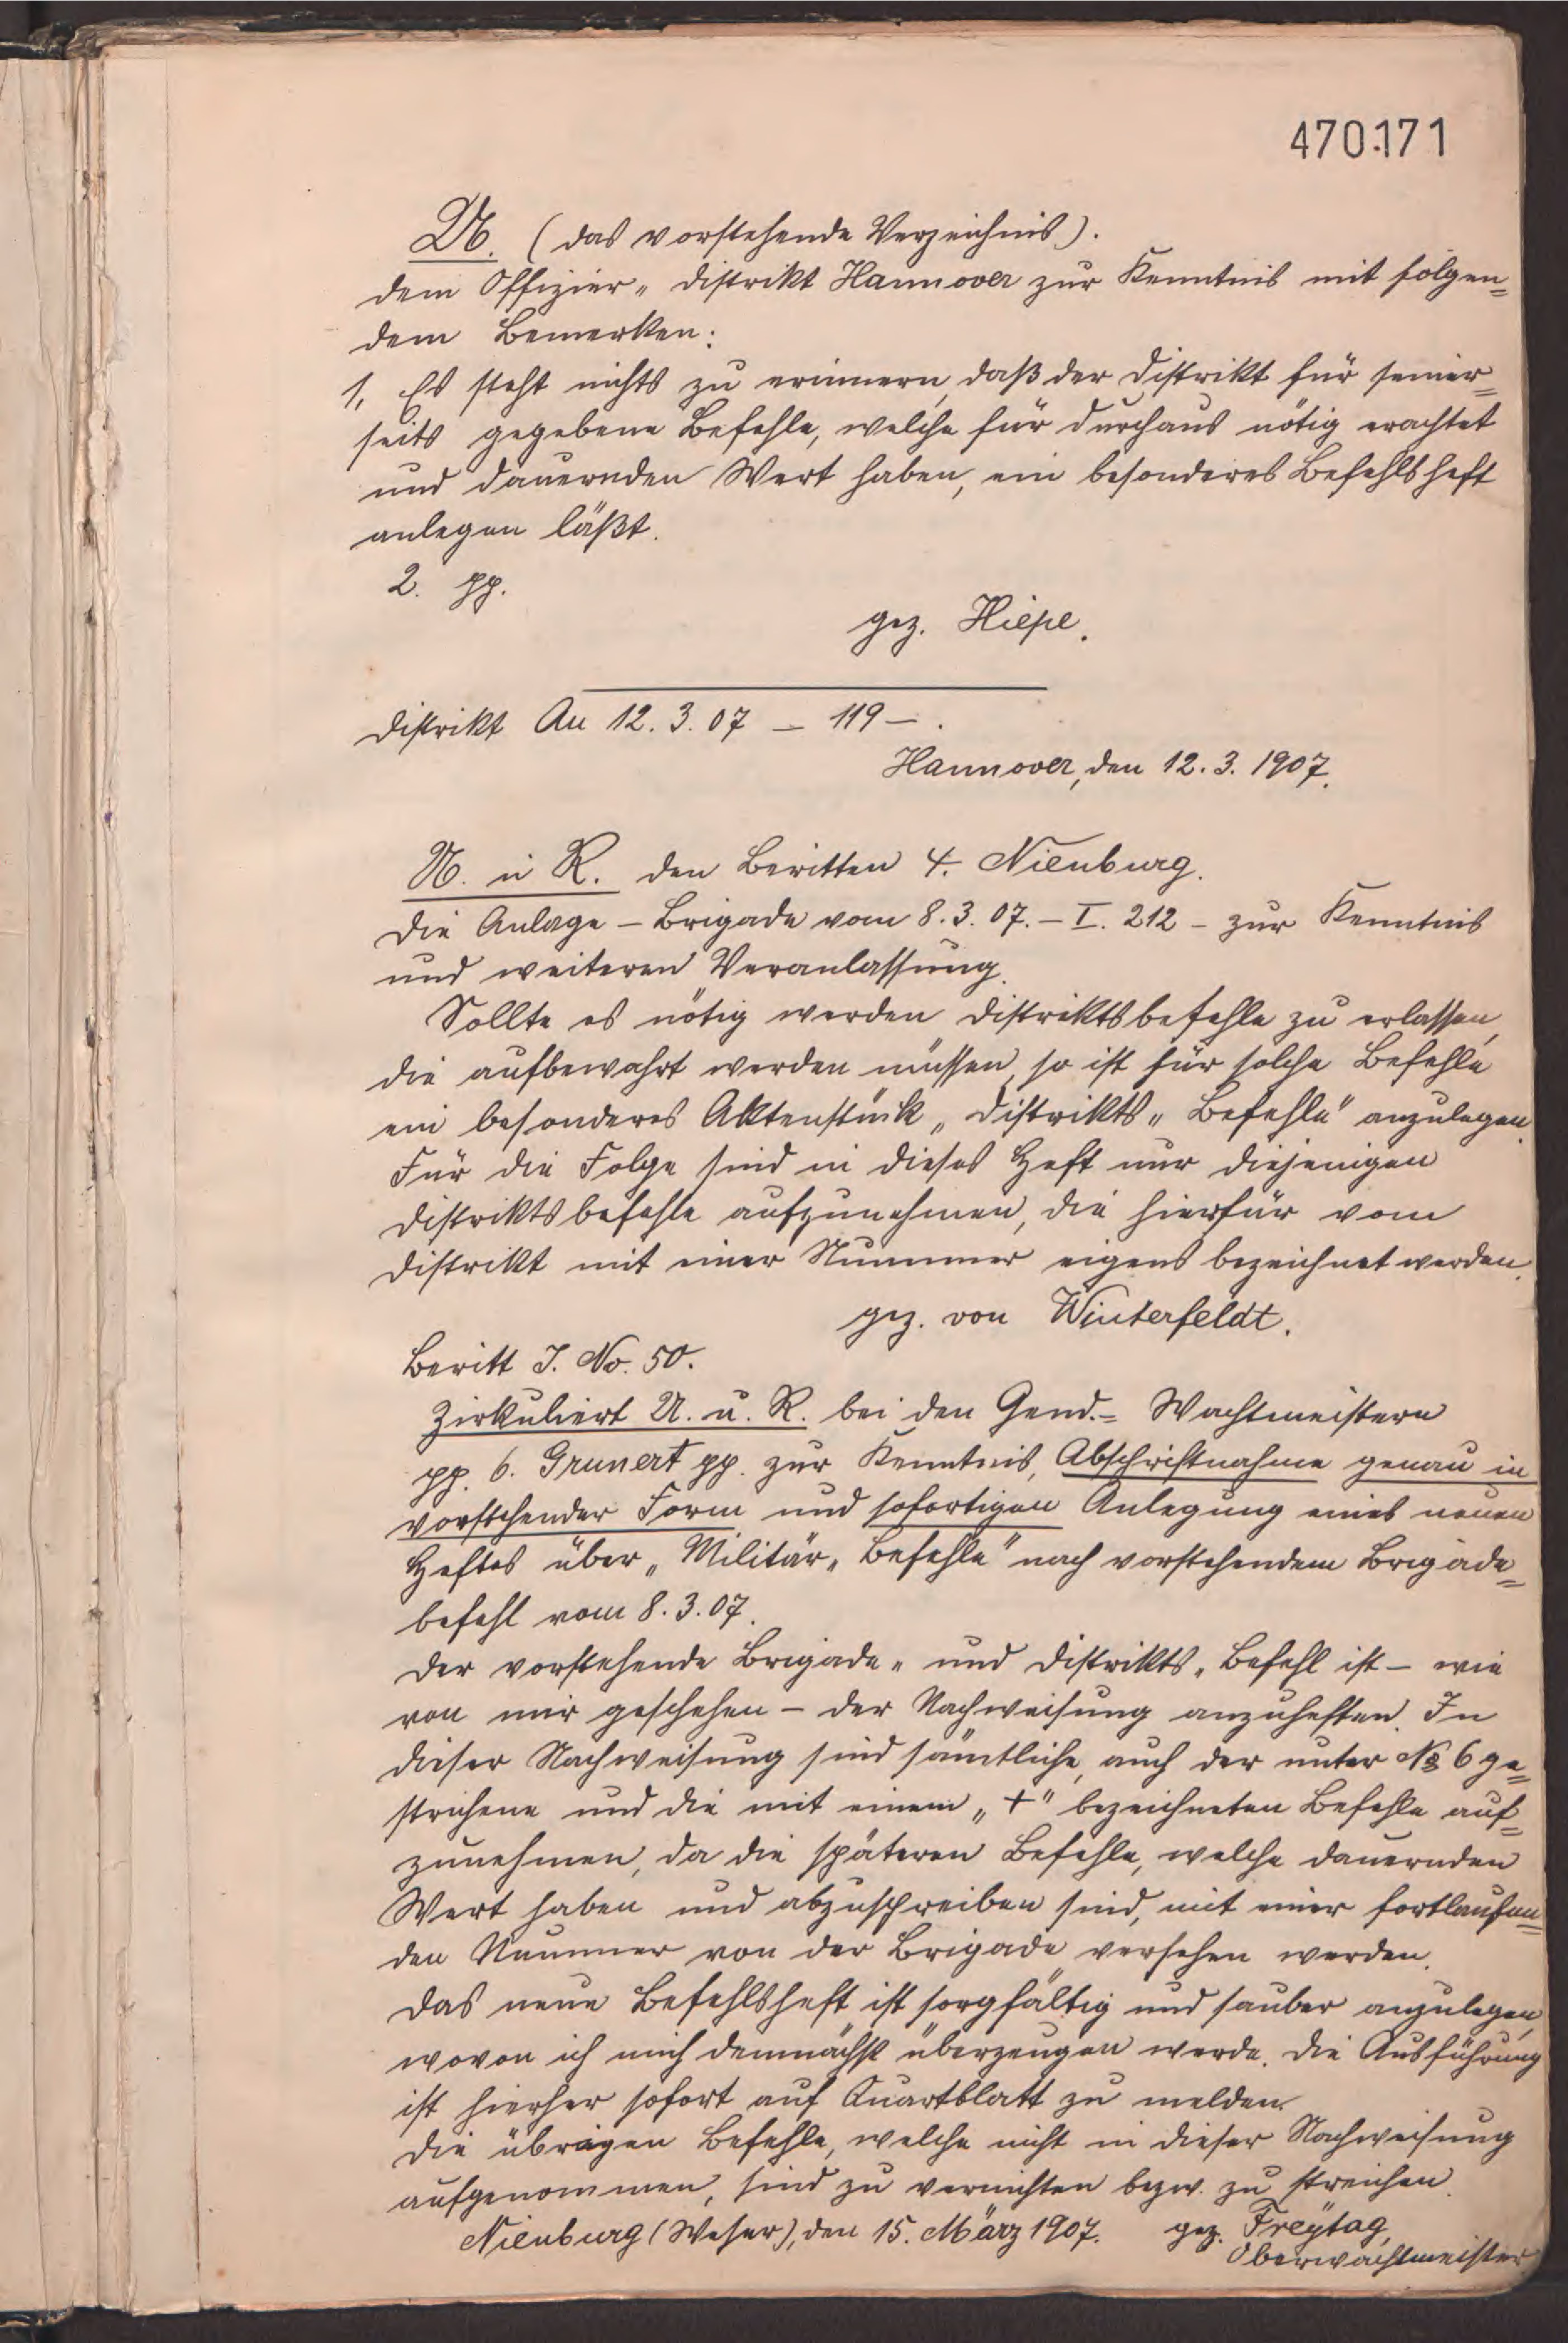 470171
U. (das vorstehende Verzeichnis).
dem Offizier„ Distrikt Hannover zur Kenntnis mit folgen=
dem Bemerken:
1, Es steht nichts zu erinnern, daß der Distrikt für seiner=
seits gegebene Befehle, welche für durchaus nötig erachtet
und dauernden Wert haben, ein besonderes Befehlsheft
anlegen läßt.
2. pp.
gez. Hiepe.
Distrikt Au 12. 3. 07 – 119 – .
Hannover, den 12. 3. 1907.
U. u R. den Beritten 4. Nienburg.
Die Anlage – Brigade vom 8. 3. 07. – I. 212 – zur Kenntnis
und weiteren Veranlassung.
Sollte es nötig werden Distriktsbefehle zu erlassen,
die aufbewahrt werden müssen, so ist für solche Befehle
ein besonderes Aktenstück „Distrikts„ Befehle" anzulegen.
Für die Folge sind in dieses Heft nur diejenigen
Distriktsbefehle aufzunehmen, die hierfür vom
Distrikt mit einer Nummer eigens bezeichnet werden.
gez. von Winterfeldt.
Beritt J. No. 50.
Zirkuliert U. u. R. bei den Gend.= Wachtmeistern
pp. 6. Grunert pp. zur Kenntnis, Abschriftnahme genau in
vorstehender Form und sofortigen Anlegung eines neuen
Heftes über „Militär„ Befehle" nach vorstehendem Brigade=
befehl vom 8. 3. 07.
Der vorstehende Brigade„ und Distrikts„ Befehl ist – wie
von mir geschehen – der Nachweisung anzuheften. In
dieser Nachweisung sind sämtliche, auch der unter No 6 ge=
strichene und die mit einem „+" bezeichneten Befehle auf=
zunehmen, da die späteren Befehle, welche dauernden
Wert haben und abzuschreiben sind, mit einer fortlaufen=
den Nummer von der Brigade versehen werden.
Das neue Befehlsheft ist sorgfältig und sauber anzulegen,
wovon ich mich demnächst überzeugen werde. Die Ausführung
ist hierher sofort auf Quartblatt zu melden.
Die übrigen Befehle, welche nicht in dieser Nachweisung
aufgenommen, sind zu vernichten bezw. zu streichen.
Nienburg (Weser), den 15. März 1907. gez. Freÿtag,
Oberwachtmeister